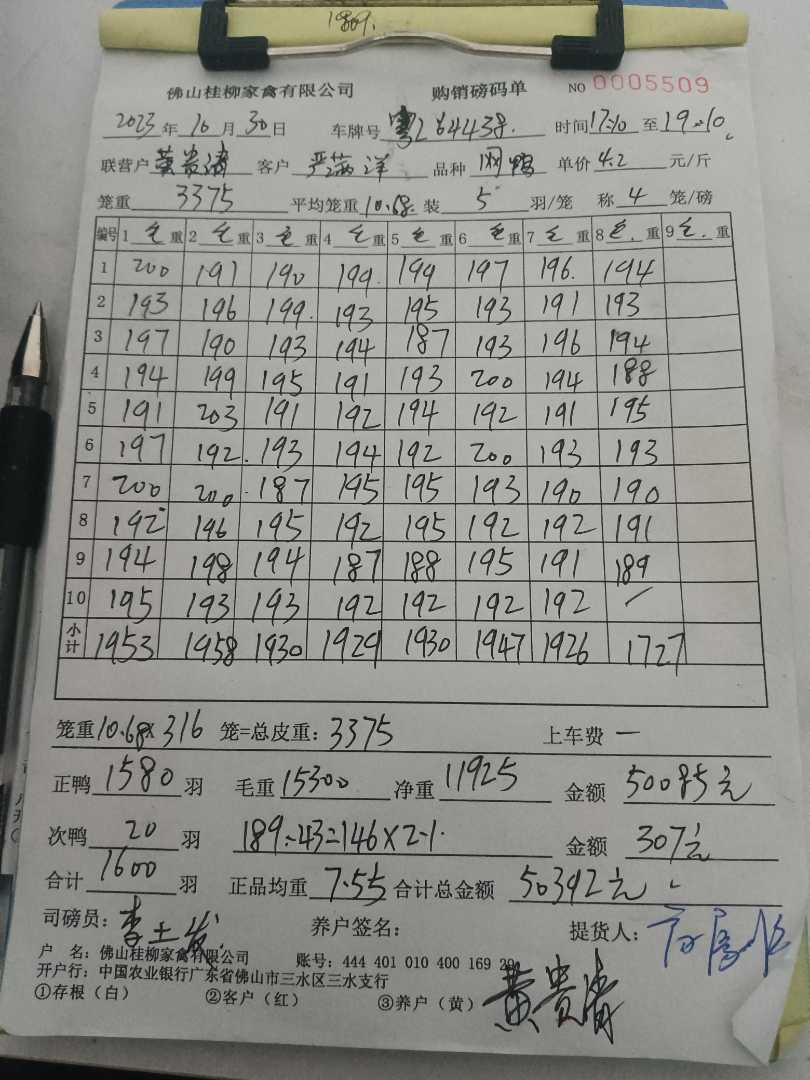 1809.
佛山桂柳家禽有限公司 购销磅码单 NO 0005509
2023年10月30日 车牌号 粤L64438. 时间17:10至19:10
联营户 黄贵涛 客户 严满洋 品种 闲鸭 单价 4.2 元/斤
笼重 3375 平均笼重 10.68. 装 5 羽/笼 称 4 笼/磅
编号 1 毛重 2 毛重 3 毛重 4 毛重 5 毛重 6 毛重 7 毛重 8 毛重 9 毛重
1 200 191 190 199 199 197 196 194
2 193 196 199 193 195 193 191 193
3 197 190 193 194 187 193 196 194
4 194 199 195 191 193 200 194 188
5 191 203 191 192 194 192 191 195
6 197 192 193 194 192 200 193 193
7 200 200 187 195 195 193 190 190
8 192 196 195 192 195 192 192 191
9 194 198 194 187 188 195 191 189
10 195 193 193 192 192 192 192 /
小计 1953 1958 1930 1929 1930 1947 1926 1727
笼重10.68×316 笼=总皮重：3375 上车费 一
正鸭 1580 羽 毛重 15300 净重 11925 金额 50085元
次鸭 20 羽 189-43=146×2.1 金额 307元
合计 1600 羽 正品均重 7.55 合计总金额 50392元
司磅员：李土发 养户签名： 提货人：
户 名：佛山桂柳家禽有限公司 账号：444 401 010 400 169 29
开户行：中国农业银行广东省佛山市三水区三水支行
①存根（白） ②客户（红） ③养户（黄） 黄贵涛